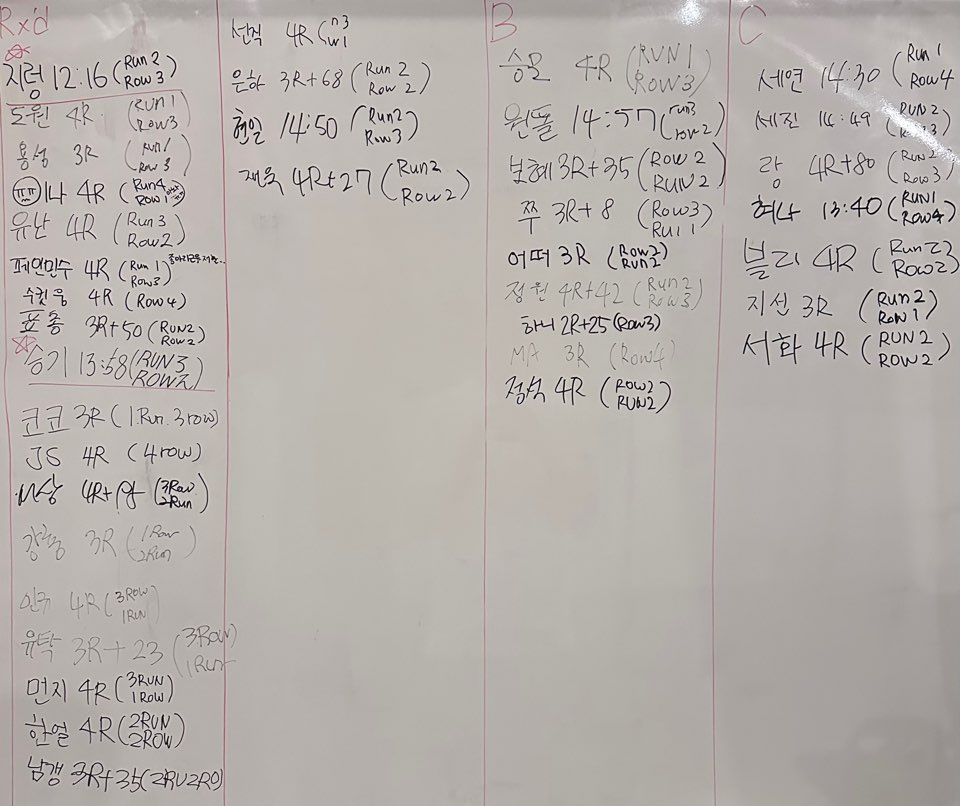 Rx'd
지렁 12:16 (Run 2
Row 3)
도원 4R (Run 1
Row3)
홍성 3R (Run 1
Row 3)
ㅠㅠ 나 4R (Run4
Row1)
유난 4R (Run3
Row2)
페인민수 4R (Run 1
Row3)
수컷웅 4R (Row4)
표종 3R+50 (RUN2
Row2)
승기 13:58 (RUN3
ROW2)
코코 3R (1.Run.3row)
JS 4R (4row)
4R+ (3Row
2Run)
3R (1Row
2Run)
민규 4R (3ROW
1RUN)
유탁 3R+23 (3Row
1Run)
먼지 4R (3RUN
1ROW)
한얼 4R (2RUN
2ROW)
남갱 3R+35 (2RU2RO)
선직 4R (n3
w1
은하 3R+68 (Run 2
Row 2)
현일 14:50 (Run2
Row3)
재욱 4R+27 (Run2
Row2)
B
승모 4R (RUN1
ROW3)
원돌 14:57 (run3
row2)
보혜 3R+35 (Row2
RUN2)
쭈 3R+8 (Row3
Run1)
어떠 3R (Row2
Run2)
정원 4R+42 (Run2
Row3)
하니 2R+25 (Row3)
MA 3R (Row4)
정석 4R (ROW2
RUN2)
C
세연 14:30 (Run 1
Row4
세진 14:49 (RUN2
3)
랑 4R+80 (Run2
Row3)
혀나 13:40 (RUN1
ROW4)
블리 4R (Run2
Row2)
지선 3R (Run2
Row1)
서화 4R (RUN2
ROW2)